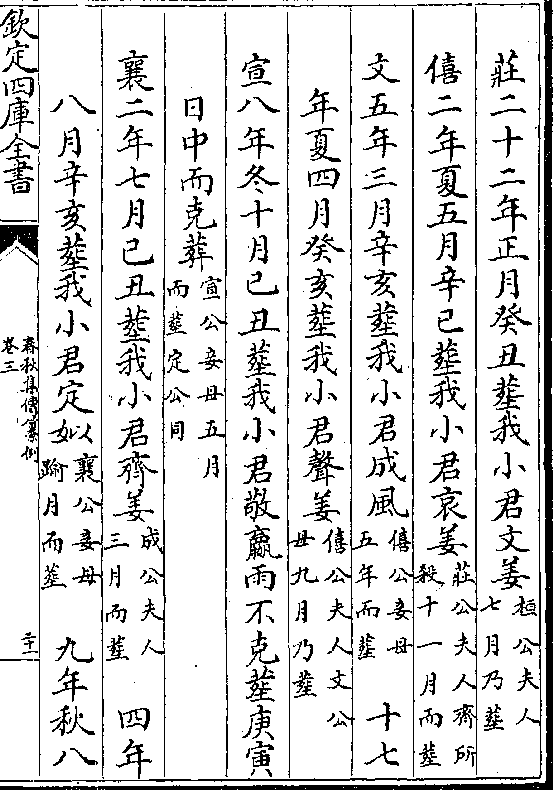 莊二十二年正月癸丑塟我小君文姜桓公夫人七月乃塟
僖二年夏五月辛巳塟我小君哀姜莊公夫人齊所殺十一月而塟
文五年三月辛亥塟我小君成風僖公妾母五年而塟 十七
年夏四月癸亥塟我小君聲姜僖公夫人文公母九月乃塟
宣八年冬十月己丑塟我小君敬嬴雨不克塟庚寅
日中而克葬宣公妾母五月而塟定公同
襄二年七月己丑塟我小君齊姜成公夫人三月而塟 四年
八月辛亥塟我小君定姒襄公妾母踰月而塟 九年秋八
欽定四庫全書
春秋集傳纂例
卷三
二十一